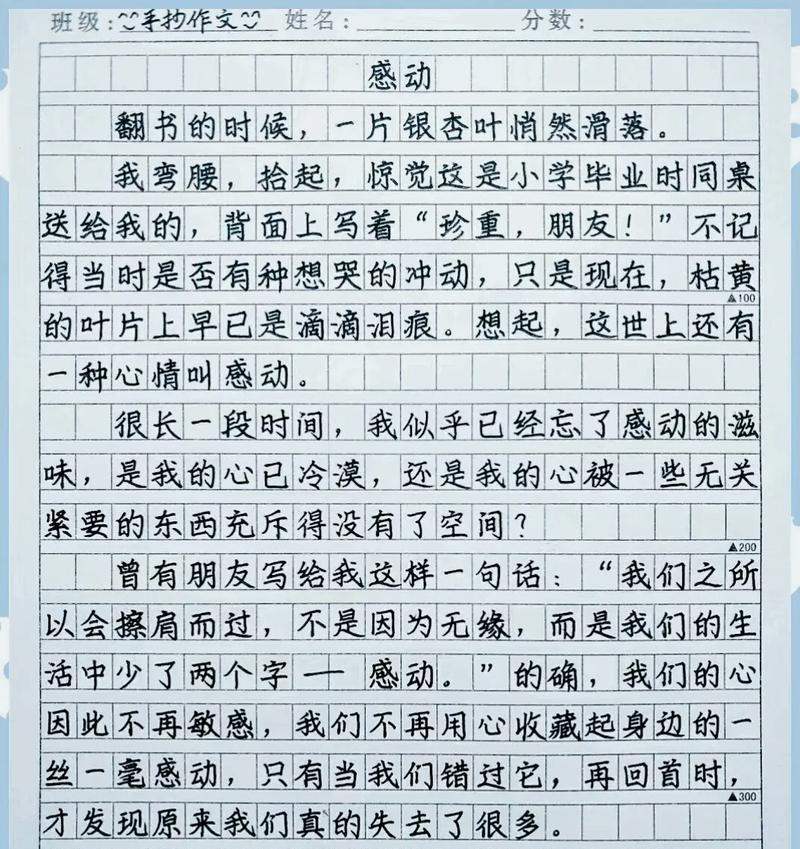 班级:手抄作文 姓名: 分数:
感动
翻书的时候，一片银杏叶悄然滑落。
我弯腰，拾起，惊觉这是小学毕业时同桌
送给我的，背面上写着“珍重，朋友！”不记
得当时是否有种想哭的冲动，只是现在，枯黄
▲100
的叶片上早已是滴滴泪痕。想起，这世上还有
一种心情叫感动。
很长一段时间，我似乎已经忘了感动的滋
味，是我的心已冷漠，还是我的心被一些无关
紧要的东西充斥得没有了空间？
▲200
曾有朋友写给我这样一句话：“我们之所
以会擦肩而过，不是因为无缘，而是我们的生
活中少了两个字——感动。”的确，我们的心
因此不再敏感，我们不再用心收藏起身边的一
丝一毫感动，只有当我们错过它，再回首时，
▲300
才发现原来我们真的失去了很多。